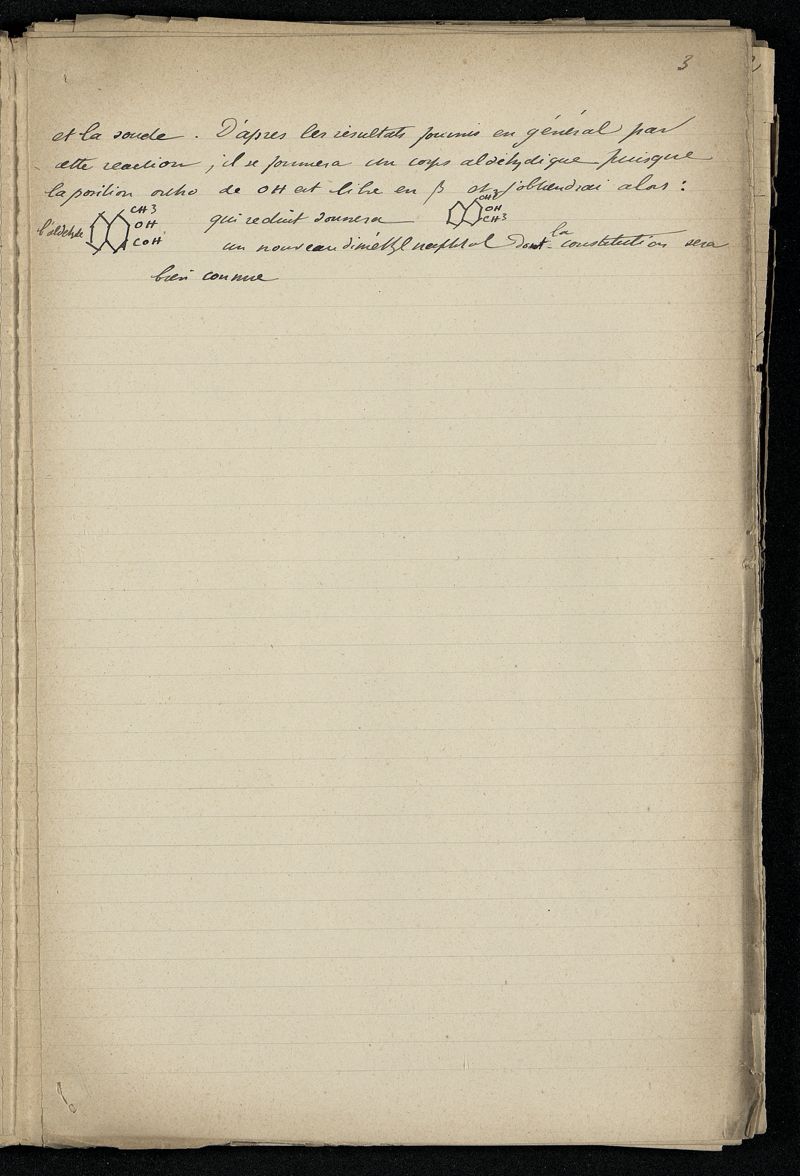 3
et la soude. D'après les résultats fournis en général par
cette reaction, il se formera un corps aldéhydique puisque
la position ortho de OH est libre en β et j'obtiendrai alors :
l'aldehyde CH3 OH COH qui reduit donnera CH3 OH CH3
un nouveau diméthyl naphtol dont la constitution sera
bien connue